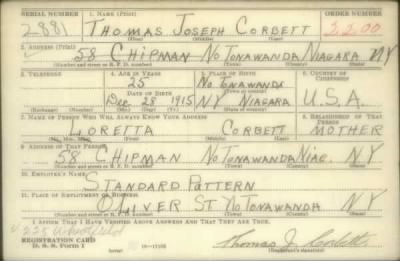 SERIAL NUMBER 1. NAME (Print) ORDER NUMBER
2881 THOMAS JOSEPH CORBETT 3200
(First) (Middle) (Last)
2. ADDRESS (Print)
58 CHIPMAN NO TONAWANDA NIAGARA NY
(Number and street or R. F. D. number) (Town) (County) (State)
3. TELEPHONE 4. AGE IN YEARS 5. PLACE OF BIRTH 6. COUNTRY OF CITIZENSHIP
25 NO TONAWANDA
DATE OF BIRTH (Town or county)
DEC 28 1915 NY NIAGARA U.S.A.
(Exchange) (Number) (Mo.) (Day) (Yr.) (State or country)
7. NAME OF PERSON WHO WILL ALWAYS KNOW YOUR ADDRESS 8. RELATIONSHIP OF THAT PERSON
LORETTA CORBETT MOTHER
(Mr., Mrs., Miss) (First) (Middle) (Last)
9. ADDRESS OF THAT PERSON
58 CHIPMAN NO TONAWANDA NIAG. N.Y.
(Number and street or R. F. D. number) (Town) (County) (State)
10. EMPLOYER'S NAME
STANDARD PATTERN
11. PLACE OF EMPLOYMENT OR BUSINESS
OLIVER ST NO TONAWANDA NY
(Number and street or R. F. D. number) (Town) (County) (State)
I AFFIRM THAT I HAVE VERIFIED ABOVE ANSWERS AND THAT THEY ARE TRUE.
REGISTRATION CARD
D. S. S. Form 1 Thomas J. Corbett